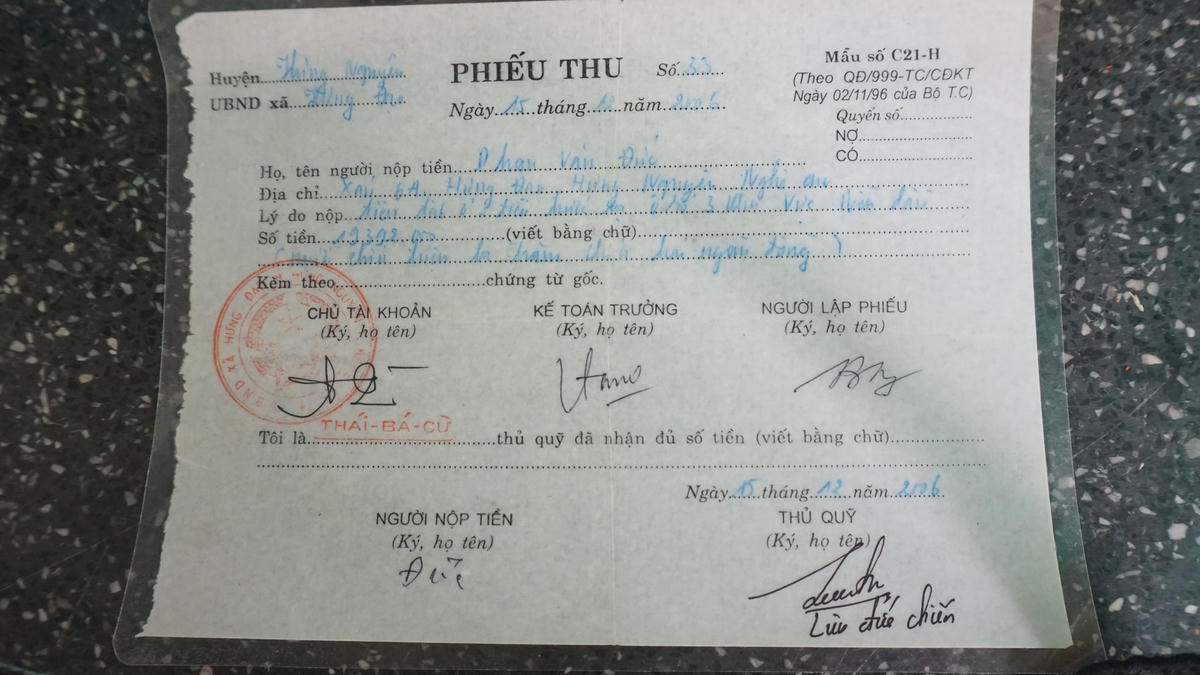 Huyện Hưng Nguyên
UBND xã Hưng Đạo
PHIẾU THU
Số 33
Ngày 15 tháng 12 năm 2006
Mẫu số C21-H
(Theo QĐ/999-TC/CĐKT
Ngày 02/11/96 của Bộ T.C)
Quyển số
NỢ
CÓ
Họ, tên người nộp tiền Phan Văn Đức
Địa chỉ Xóm 6A Hưng Đạo Hưng Nguyên Nghệ an
Lý do nộp tiền đất ở số 3
Số tiền 19392 000 (viết bằng chữ)
(Mười chín triệu ba trăm chín hai ngàn đồng)
Kèm theo chứng từ gốc.
UBND XÃ HƯNG ĐẠO H. HƯNG NGUYÊN
CHỦ TÀI KHOẢN KẾ TOÁN TRƯỞNG NGƯỜI LẬP PHIẾU
(Ký, họ tên) (Ký, họ tên) (Ký, họ tên)
THÁI-BÁ-CỪ
Tôi là thủ quỹ đã nhận đủ số tiền (viết bằng chữ)
Ngày 15 tháng 12 năm 2006
NGƯỜI NỘP TIỀN THỦ QUỸ
(Ký, họ tên) (Ký, họ tên)
Đức
Lưu đức chiến